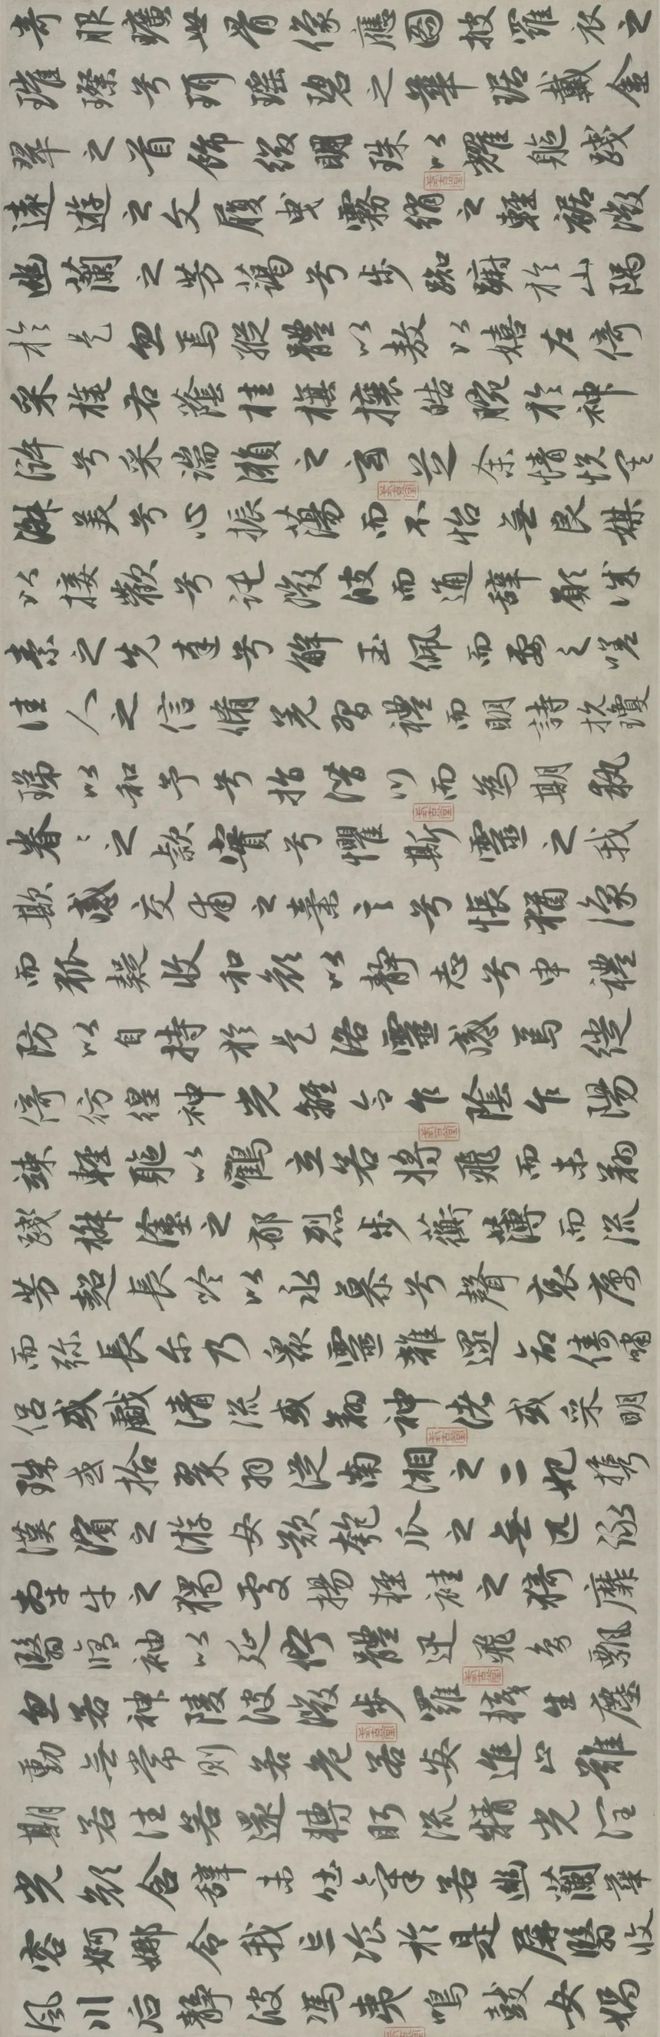 奇服曠世骨像應圖披羅衣之
璀璨兮珥瑤碧之華琚戴金
翠之首飾綴明珠以耀軀踐
遠遊之文履曳霧綃之輕裾微
幽蘭之芳藹兮步踟躕於山隅
於是忽焉縱體以敖以嬉左倚
采旄右蔭桂旗攘皓腕於神
滸兮采湍瀨之玄芝余情悅其
淑美兮心振蕩而不怡無良媒
以接歡兮託微波而通辭願誠
素之先達兮解玉佩而要之嗟
佳人之信脩羌習禮而明詩抗瓊
珶以和予兮指潛川而為期執
眷〻之款實兮懼斯靈之我
欺感交甫之棄言兮悵猶豫
而狐疑收和顏以靜志兮申禮
防以自持於是洛靈感焉徙
倚彷徨神光離合乍陰乍陽
竦輕軀以鶴立若將飛而未翔
踐椒塗之郁烈步蘅薄而流
芳超長吟以永慕兮聲哀厲
而彌長爾乃眾靈雜遝命儔嘯
侶或戲清流或翔神渚或采明
珠或拾翠羽從南湘之二妃攜
漢濱之游女歎匏瓜之無匹詠
牽牛之獨處揚輕袿之猗靡
翳脩袖以延佇體迅飛鳧飄
忽若神陵波微步羅襪生塵
動無常則若危若安進止難
期若往若還轉眄流精光
顏含辭未吐氣若幽蘭華
容婀娜令我忘飡於是屏翳收
風川后靜波馮夷鳴鼓女媧